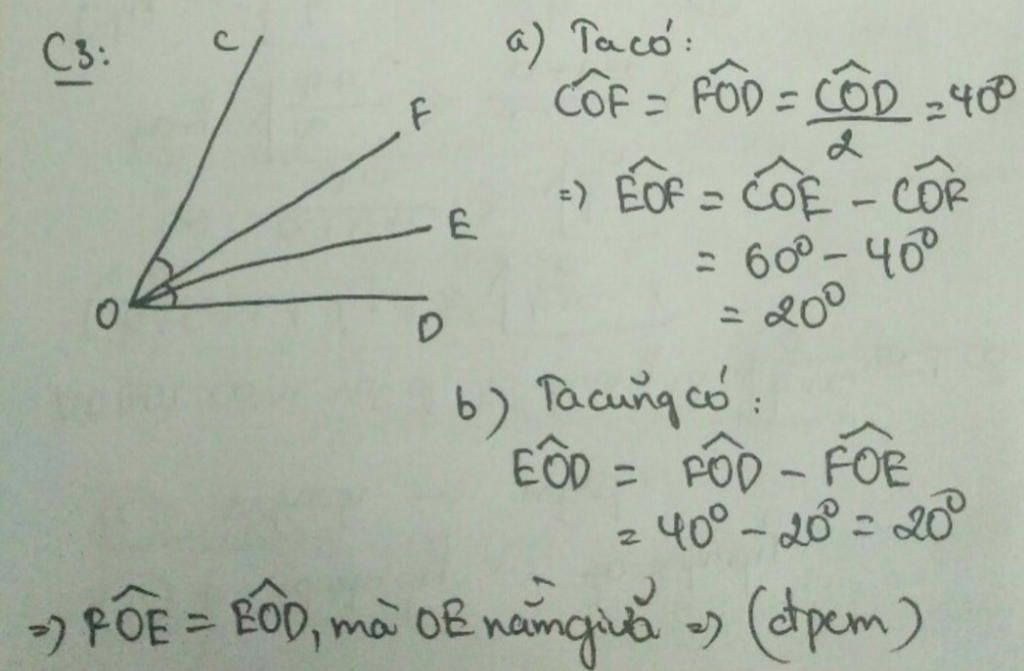 C3:
C
F
E
O
D
a) Ta có:
CÔF = FÔD = CÔD/2 = 40⁰
=) EÔF = CÔE - CÔF
= 60⁰ - 40⁰
= 20⁰
b) Ta cũng có:
EÔD = FÔD - FÔE
= 40⁰ - 20⁰ = 20⁰
=) FÔE = EÔD, mà OE nằm giữa =) (đpcm)